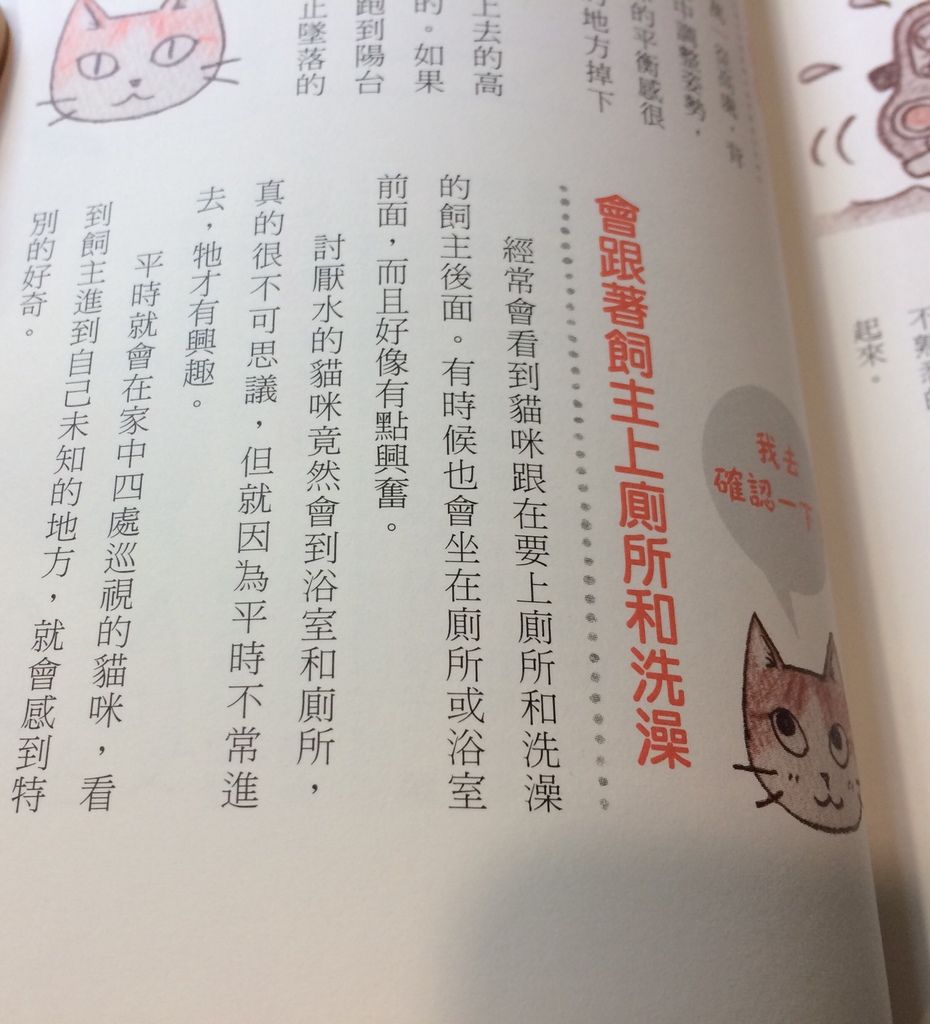 會跟著飼主上廁所和洗澡
我去
確認一下
經常會看到貓咪跟在要上廁所和洗澡
的飼主後面。有時候也會坐在廁所或浴室
前面，而且好像有點興奮。
討厭水的貓咪竟然會到浴室和廁所，
真的很不可思議，但就因為平時不常進
去，牠才有興趣。
平時就會在家中四處巡視的貓咪，看
到飼主進到自己未知的地方，就會感到特
別的好奇。
中調整姿勢，
的平衡感很
地方掉下
上去的高
的。如果
跑到陽台
止墜落的
起來。